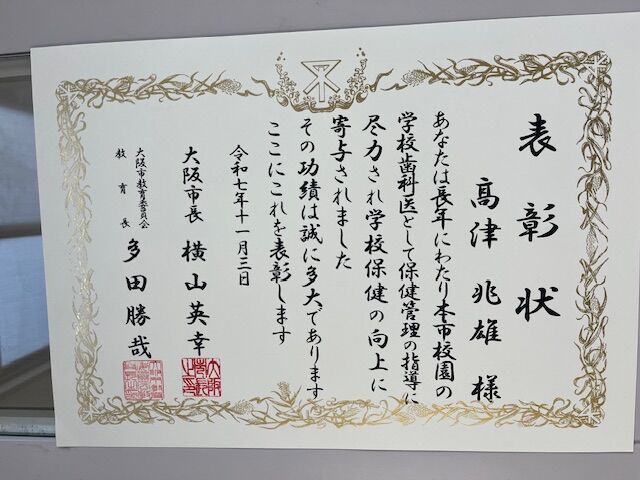 表彰状
髙津兆雄様
あなたは長年にわたり本市校園の
学校歯科医として保健管理の指導に
尽力され学校保健の向上に
寄与されました
その功績は誠に多大であります
ここにこれを表彰します
令和七年十一月三日
大阪市長 横山英幸
大阪市教育委員会
教育長 多田勝哉